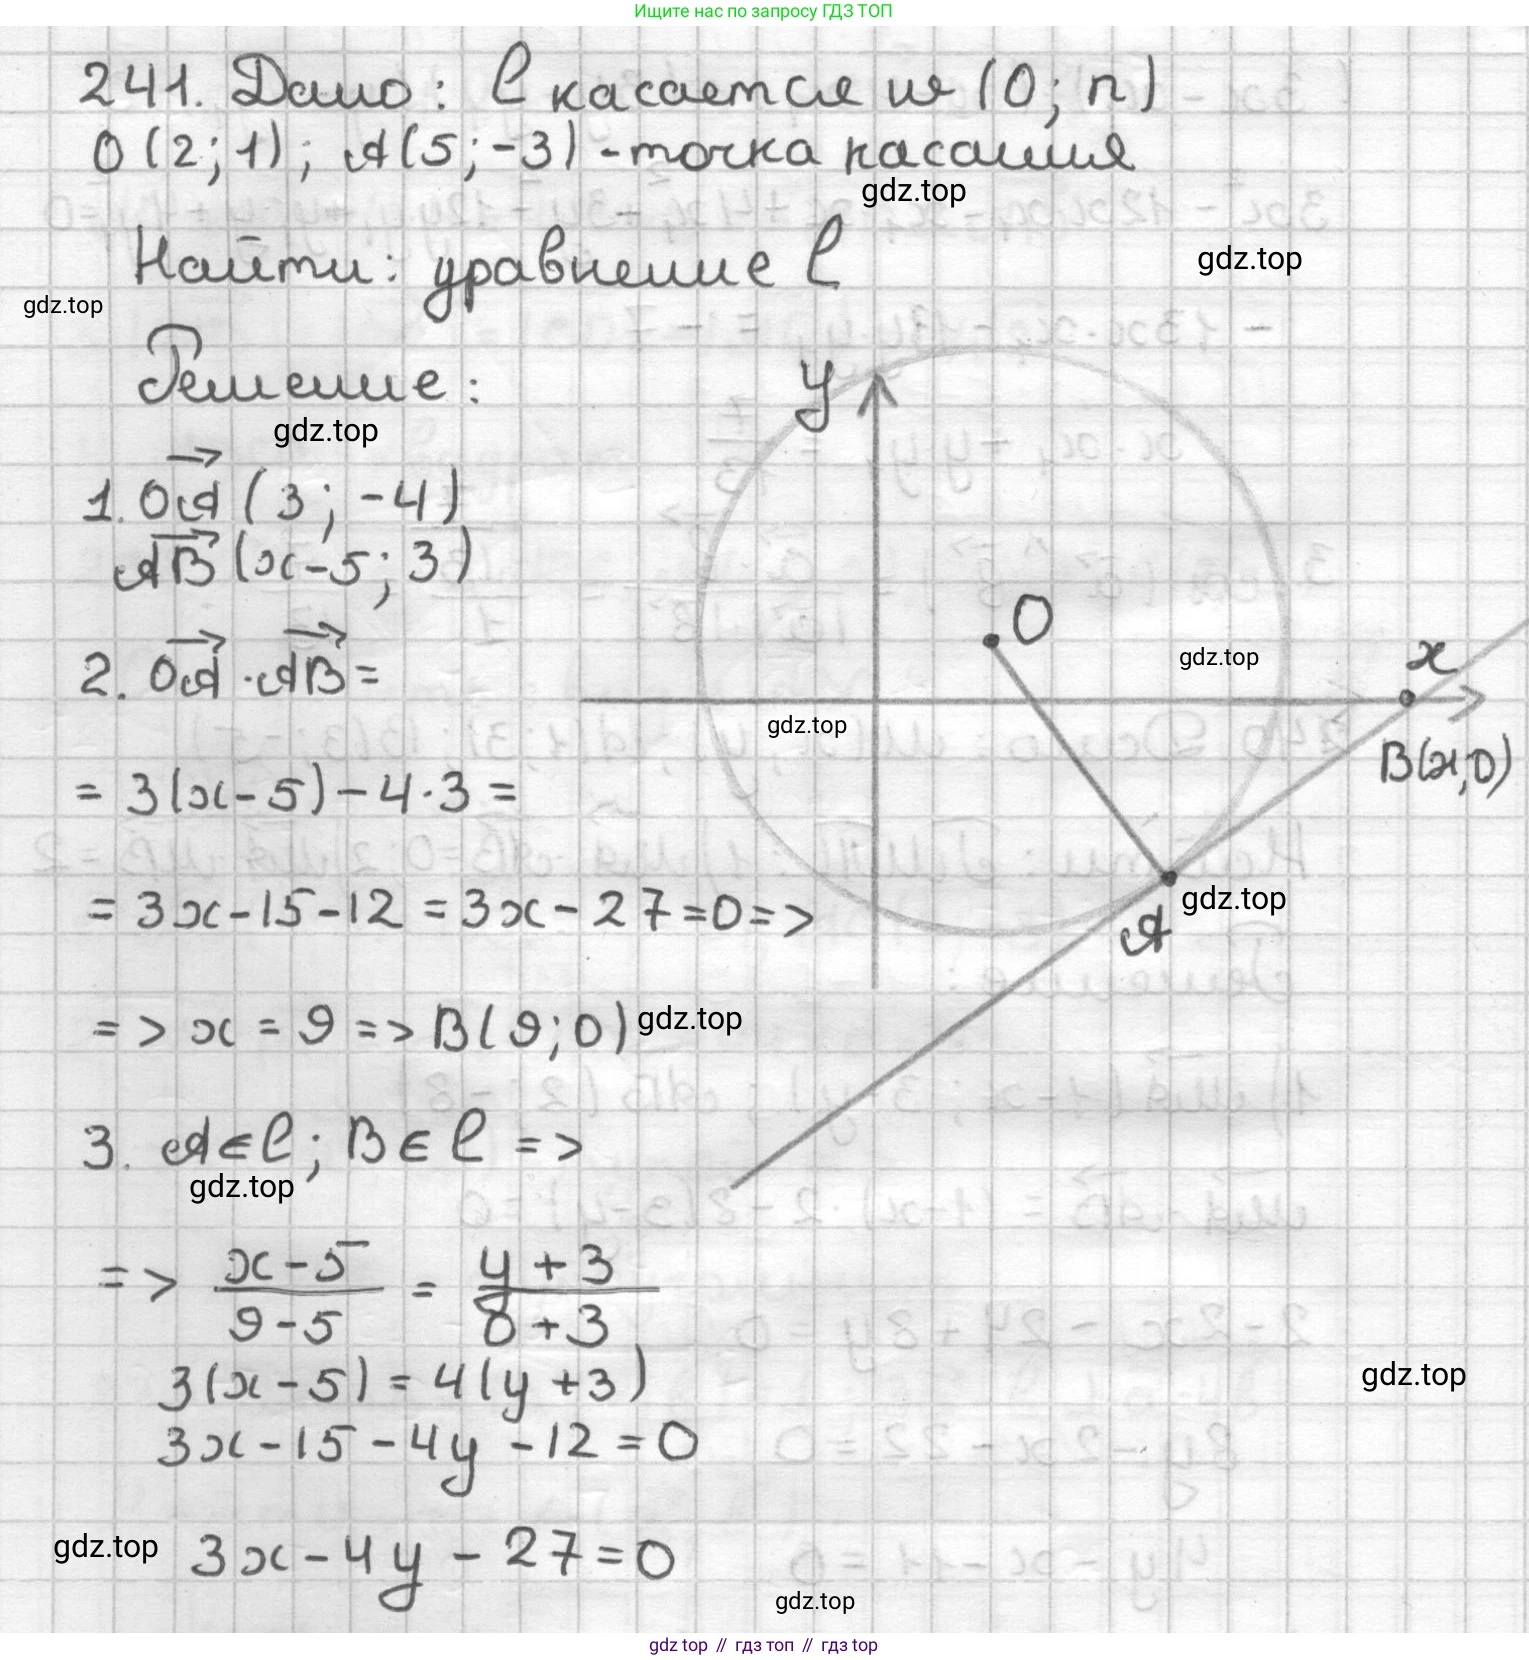 Ищите нас по запросу ГДЗ ТОП
241. Дано: l касается w (O; r)
O (2; 1); A (5; -3) - точка касания
gdz.top
Найти: уравнение l
gdz.top
gdz.top
Решение:
gdz.top
y
1. OA (3; -4)
AB (x-5; 3)
O
2. OA · AB =
gdz.top
x
gdz.top
B(x;0)
= 3(x-5) - 4·3 =
= 3x - 15 - 12 = 3x - 27 = 0 =>
gdz.top
A
=> x = 9 => B(9; 0)
gdz.top
3. A ∈ l; B ∈ l =>
gdz.top
=> x-5 / 9-5 = y+3 / 0+3
3(x-5) = 4(y+3)
gdz.top
3x - 15 - 4y - 12 = 0
gdz.top
3x - 4y - 27 = 0
gdz.top
gdz top // гдз топ // гдз top